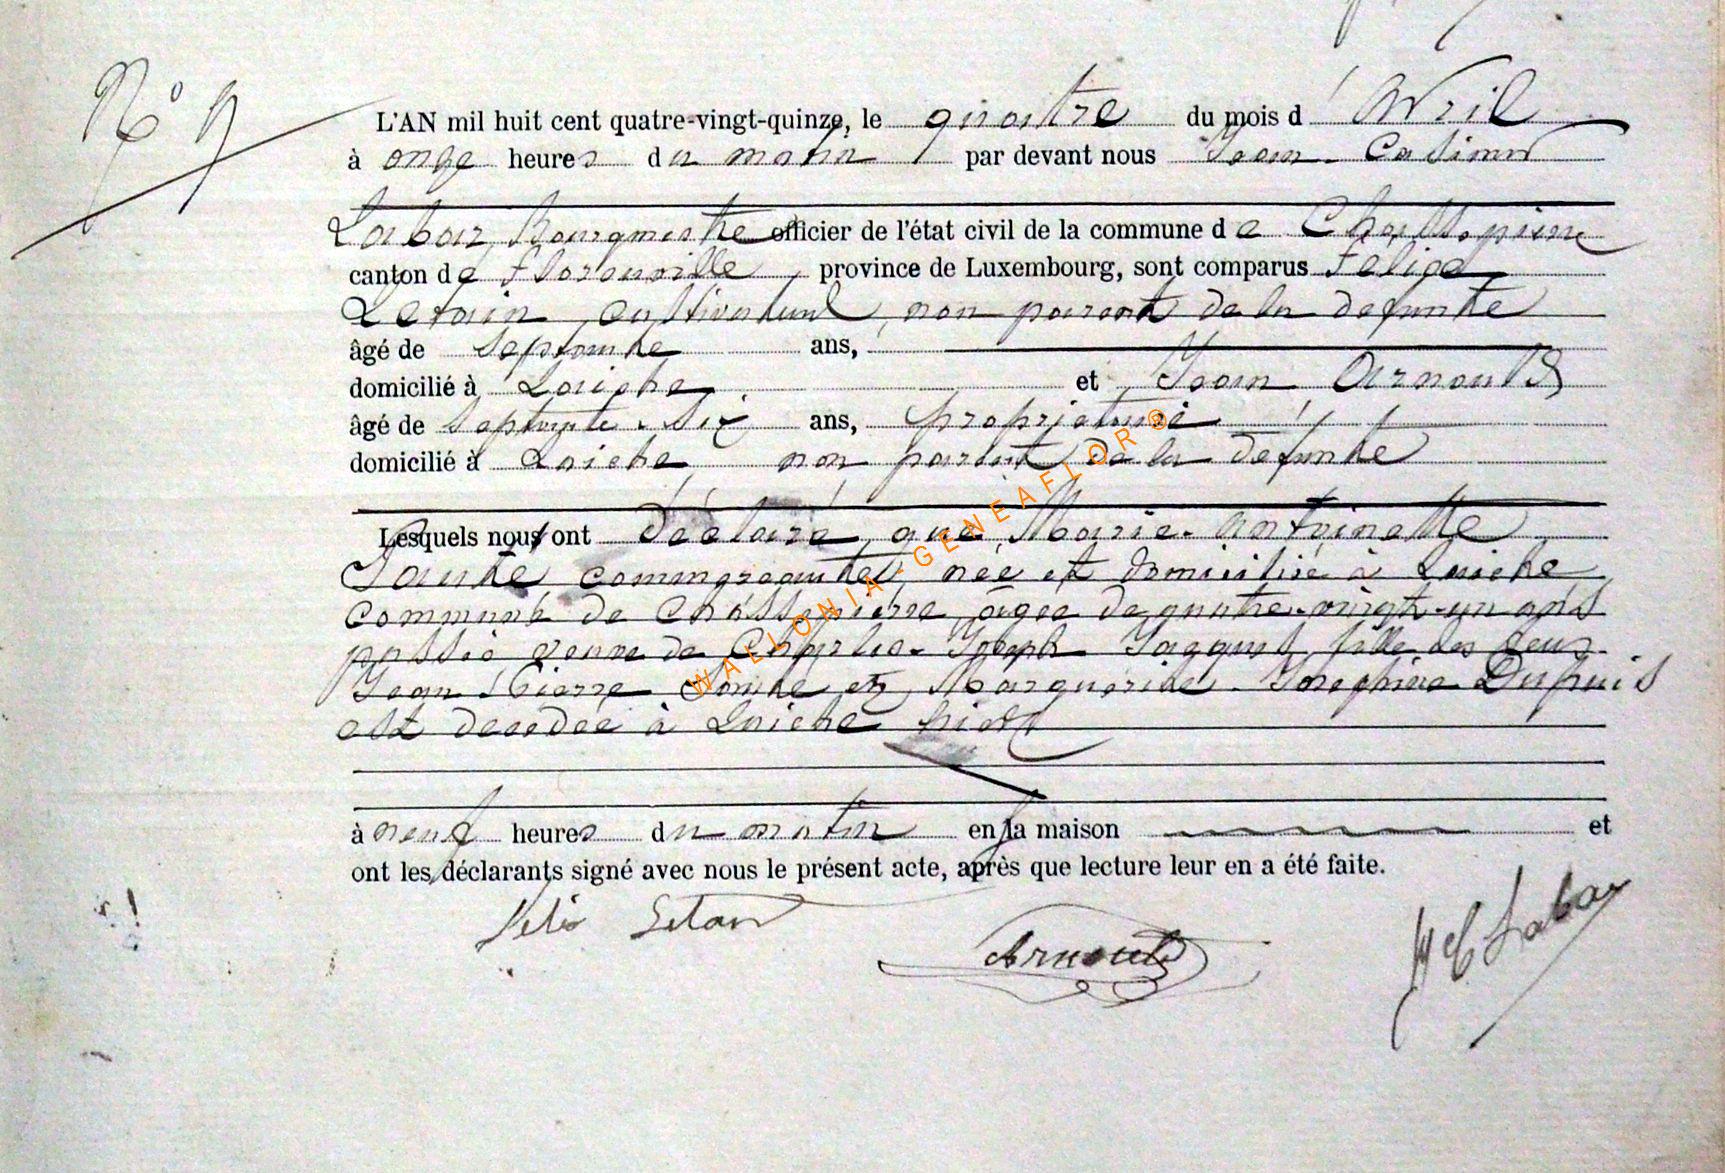 N° 9
L'AN mil huit cent quatre-vingt-quinze, le quatre du mois d'Avril
à onze heures du matin par devant nous Jean-Casimir
Labar, Bourgmestre officier de l'état civil de la commune de Chassepierre
canton de Florenville, province de Luxembourg, sont comparus Félix
Letain, cultivateur, non parent de la defunte
âgé de septante ans,
domicilié à Laiche et Jean Arnould
âgé de septante-six ans, propriétaire
domicilié à Laiche, non parent de la defunte
Lesquels nous ont déclaré que Marie-Antoinette
née et domiciliée à Laiche
commune de Chassepierre, âgée de quatre-vingt-un ans
passés veuve de Charles-Joseph Jacques, fille des feus
Jean-Pierre et Marguerite-Josephine Dupuis
est decedée à Laiche hier
à neuf heures du matin en la maison et
ont les déclarants signé avec nous le présent acte, après que lecture leur en a été faite.
Félix Letain
Arnould
J C Labar
WALLONIA-GENEAFLOR®